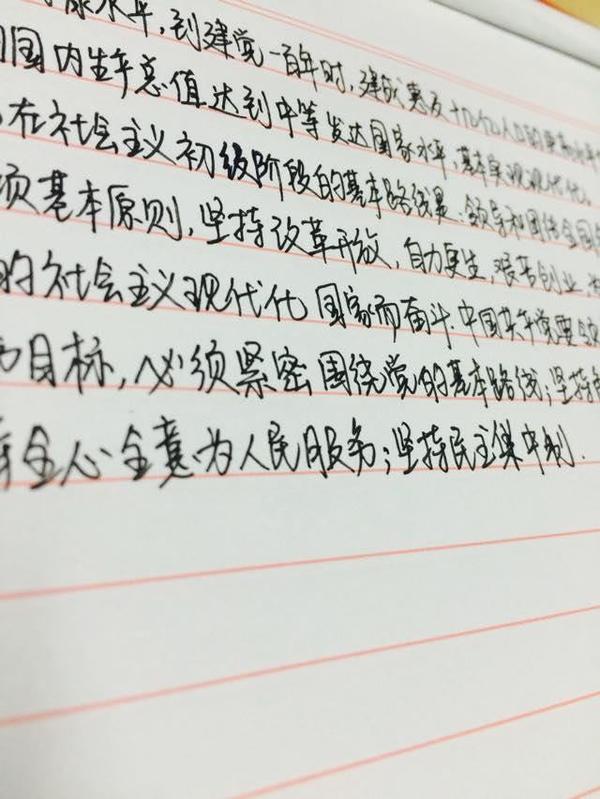 康水平,到建党一百年时,建成惠及十几亿人口的更高水平
国内生产总值达到中等发达国家水平,基本实现现代化.
在社会主义初级阶段的基本路线是:领导和团结全国
项基本原则,坚持改革开放,自力更生,艰苦创业,
的社会主义现代化国家而奋斗.中国共产党要领
目标,必须紧密围绕党的基本路线;坚持
全心全意为人民服务;坚持民主集中制.